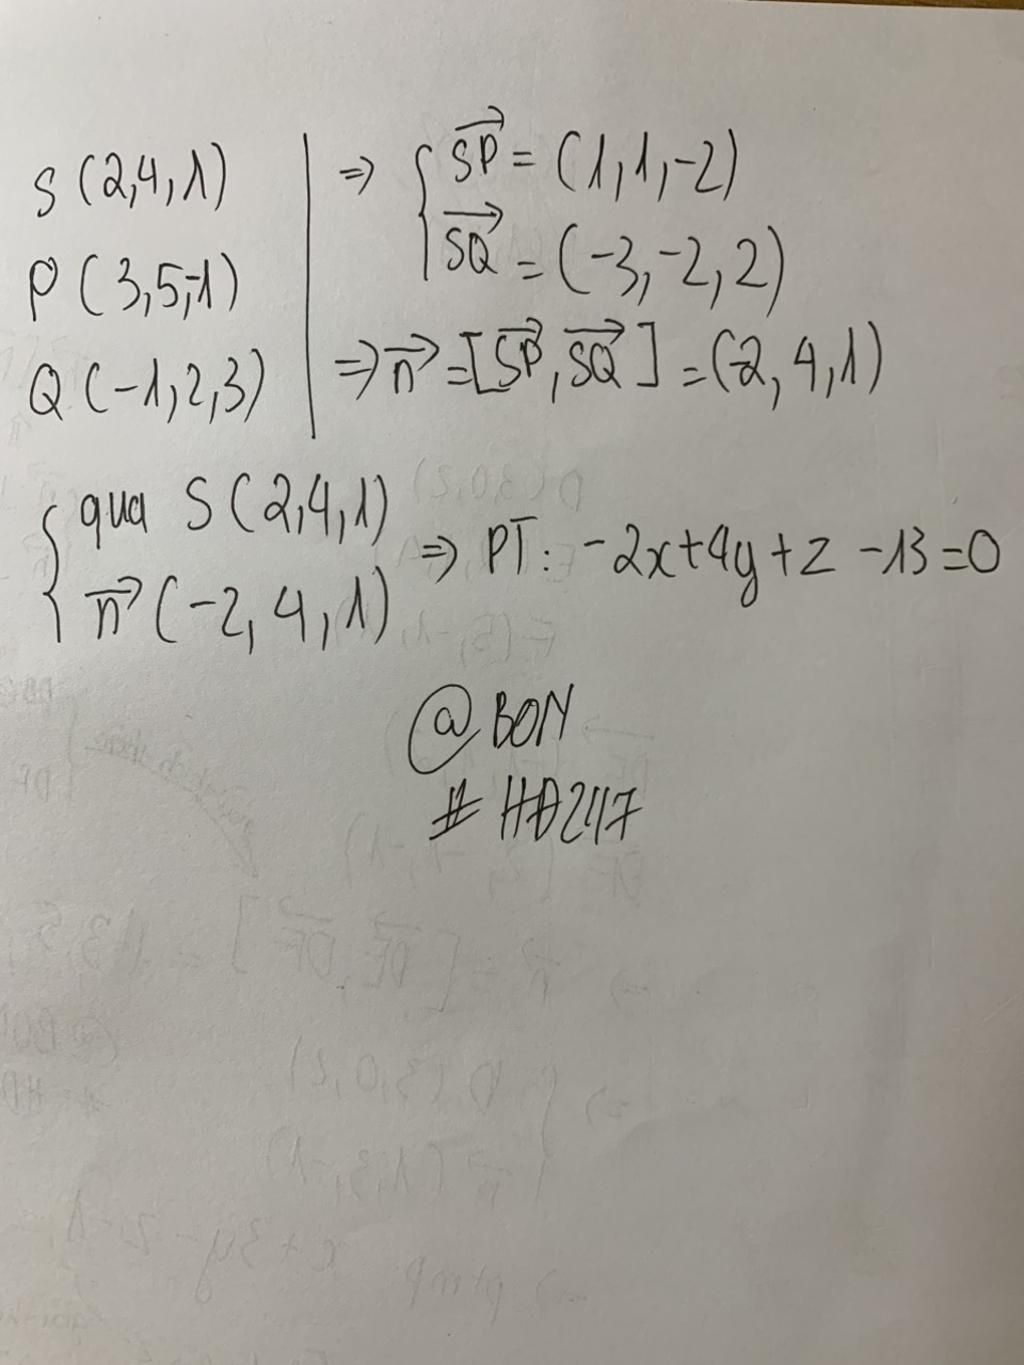 S(2,4,1)
P(3,5,-1)
Q(-1,2,3)
⇒ { SP→ = (1,1,-2)
SQ→ = (-3,-2,2)
⇒ n→ = [SP→, SQ→] = (-2,4,1)
{ qua S(2,4,1)
n→(-2,4,1)
⇒ PT: -2x+4y+z-13=0
@BON
#HĐ247